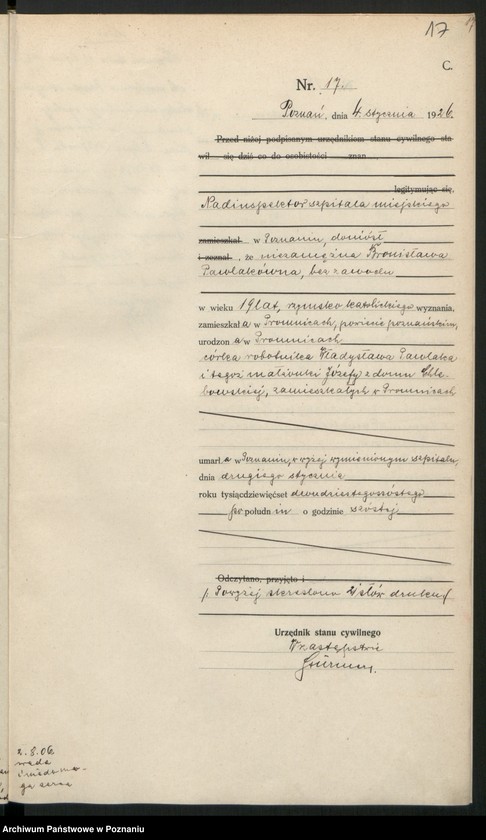 17
C.
Nr. 17.
Poznań, dnia 4. stycznia 1926.
Przed niżej podpisanym urzędnikiem stanu cywilnego sta
wił się dziś co do osobistości znan
legitymując się
Nadinspektor szpitala miejskiego
zamieszkał w Poznaniu, doniósł
i zeznał, że niezamężna Bronisława
Pawlakówna, bez zawodu
w wieku 19 lat, rzymsko katolickiego wyznania,
zamieszkała w Promnicach, powiecie poznańskim,
urodzona w Promnicach
córka robotnika Władysława Pawlaka
i tegoż małżonki Józefy z domu Chle-
bowskiej, zamieszkałych w Promnicach
umarła w Poznaniu, w wyżej wymienionym szpitalu,
dnia drugiego stycznia
roku tysiącdziewięćset dwudziestegoszóstego
po południu o godzinie szóstej
Odczytano, przyjęto i
Powyżej skreślono 21 słów druku
Urzędnik stanu cywilnego
W zastępstwie
2.8.06
wada
serca
Archiwum Państwowe w Poznaniu